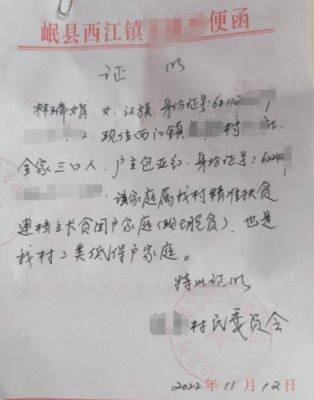 岷县西江镇 便函
证明
林瑞娟,女,汉族,身份证号:6211
2,现住西江镇 村 社,
全家三口人,户主包亚红,身份证号:62
,该家庭属我村精准扶贫
建档立卡贫困户家庭(现已脱贫),也是
我村二类低保户家庭。
特此证明
村民委员会
2022年11月12日